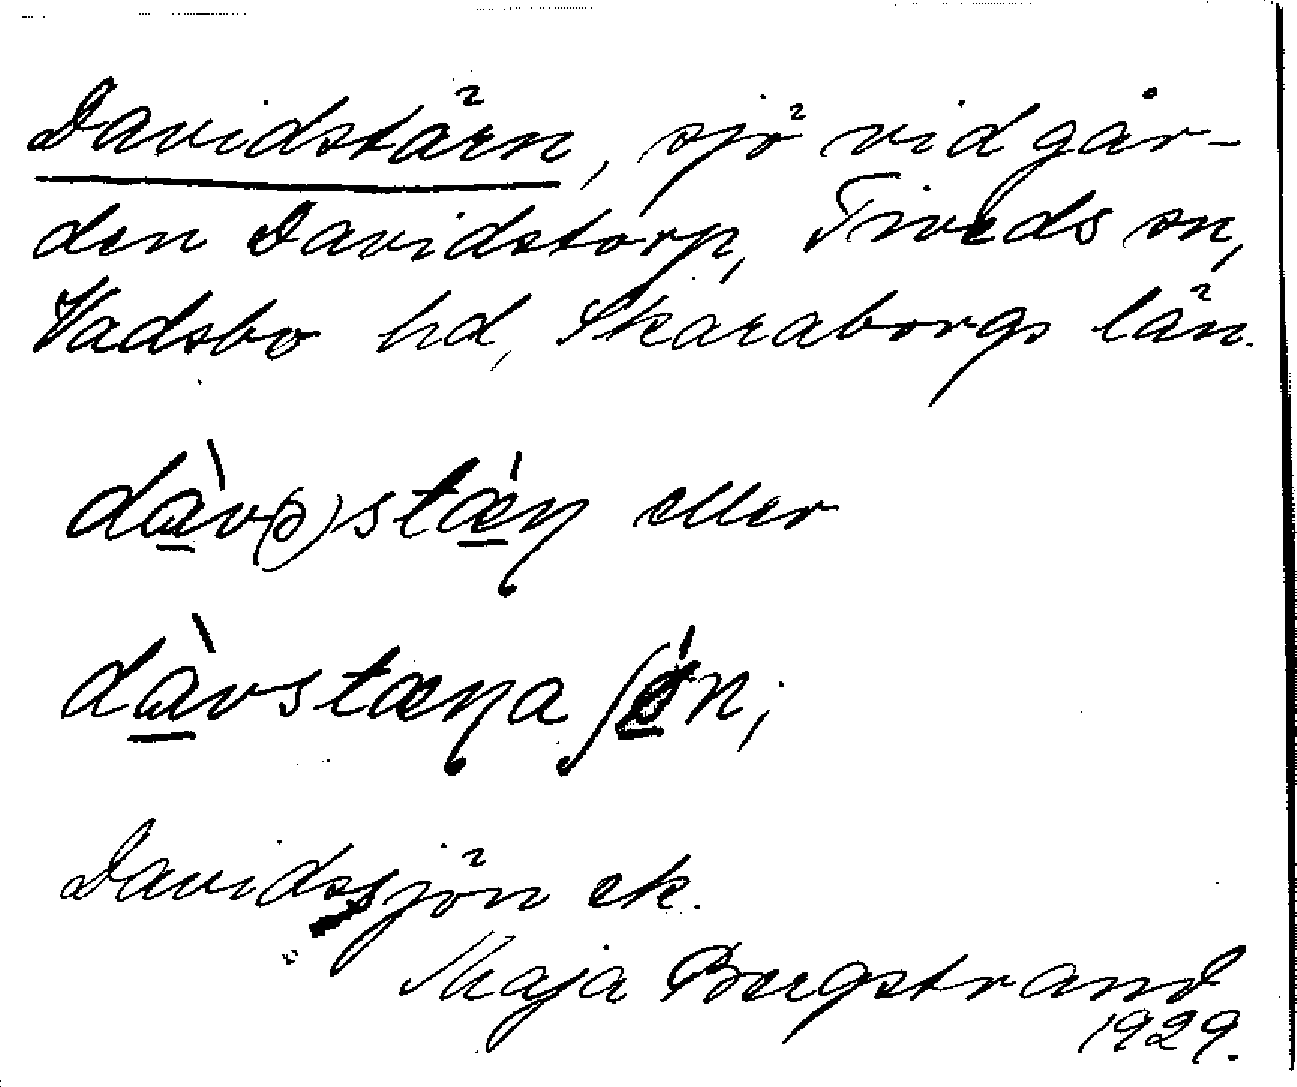 Davidstärn, sjö vid går-
den Davidstorp, Tiveds sn,
Vadsbo hd, Skaraborgs län.
dàv(ə)stǽɳ eller
dàvstæɳa ʃǿn;
Davidssjön ek.
Maja Bergstrand
1929.